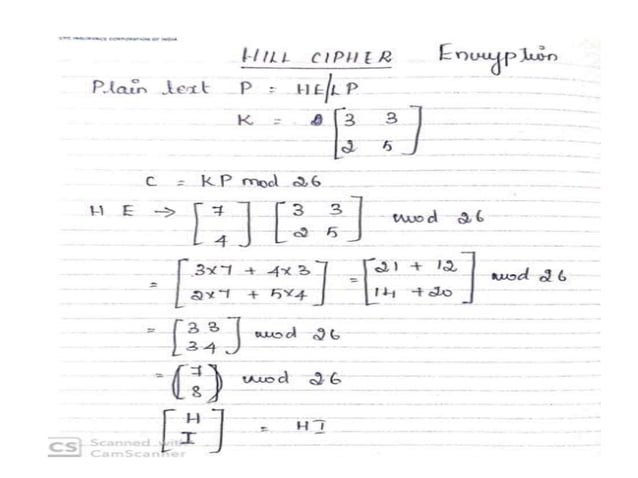 LIFE INSURANCE CORPORATION OF INDIA
HILL CIPHER Encryption
Plain text P = HE/LP
K = [3 3
2 5]
C = KP mod 26
H E → [7 4] [3 3 2 5] mod 26
= [3x7 + 4x3 2x7 + 5x4] = [21 + 12 14 + 20] mod 26
= [33 34] mod 26
= (7 8) mod 26
[H I] = HI
CS Scanned with
CamScanner